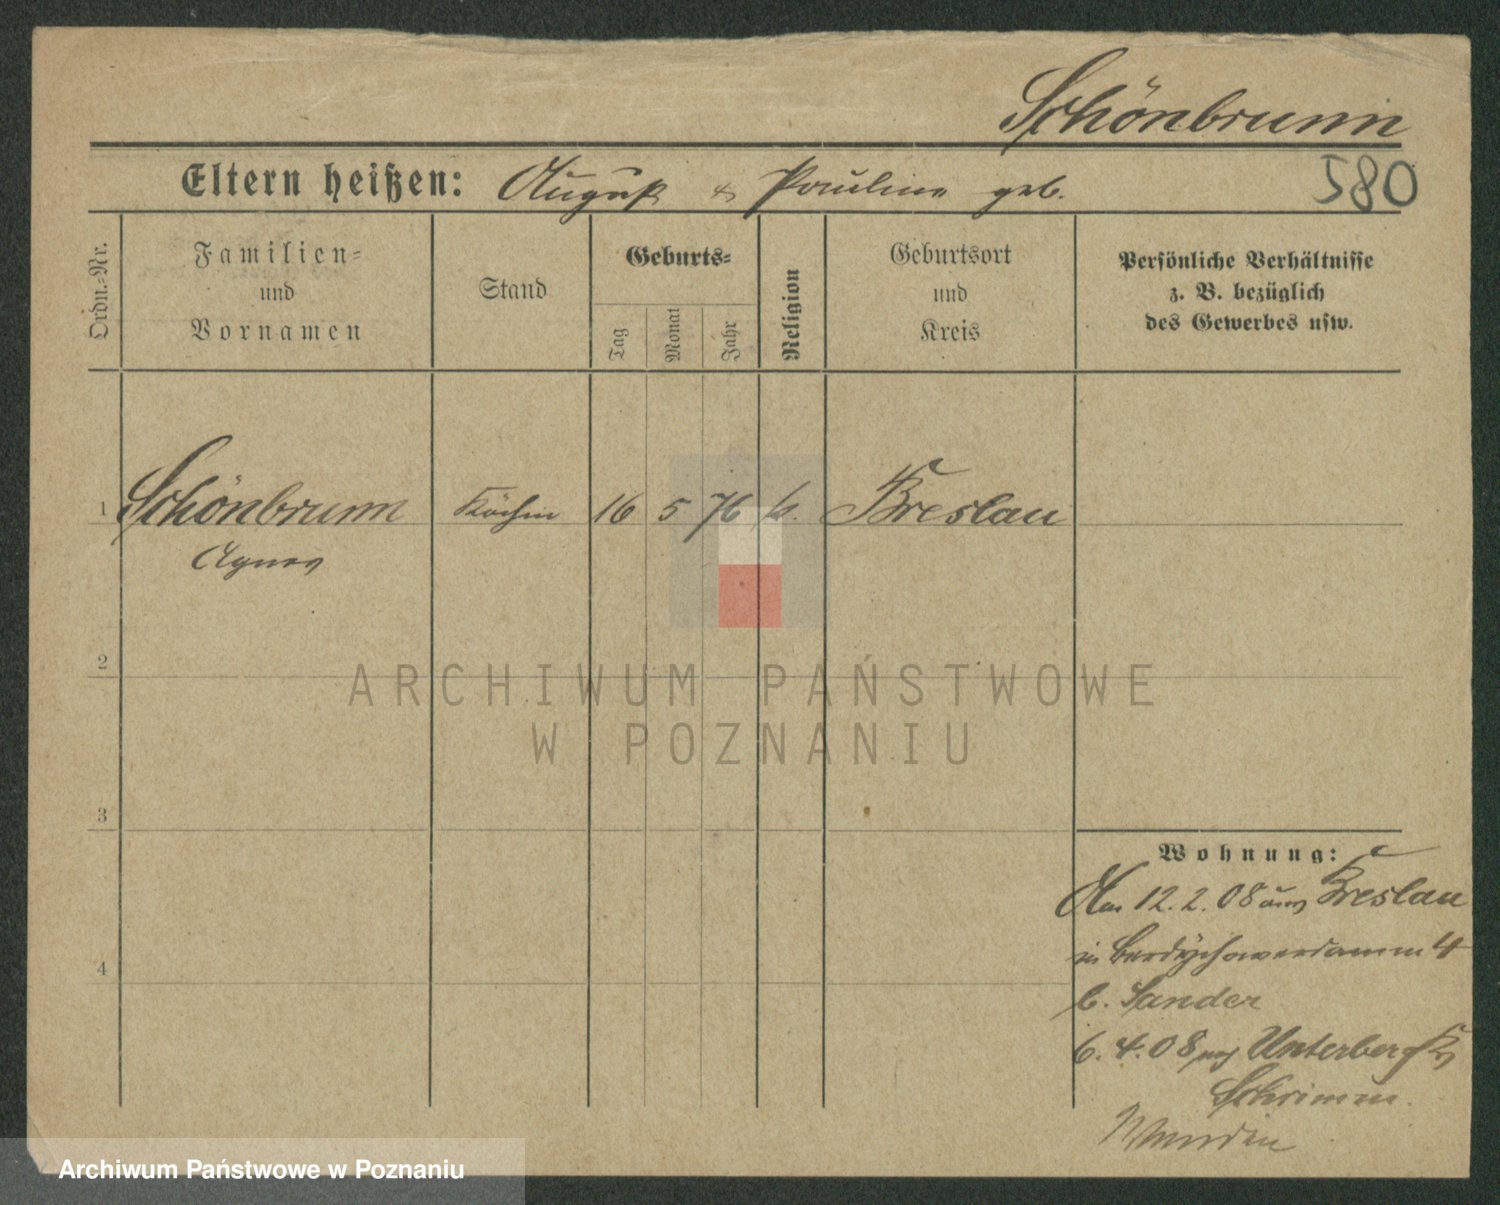 Schönbrunn
580
Eltern heißen: August & Pauline geb.
Ordn.-Nr.
Familien-
und
Vornamen
Stand
Geburts-
Tag
Monat
Jahr
Religion
Geburtsort
und
Kreis
Persönliche Verhältnisse
z. B. bezüglich
des Gewerbes usw.
1 Schönbrunn Köchin 16 5 76 k. Breslau
Agnes
2
ARCHIWUM PAŃSTWOWE
W POZNANIU
3
Wohnung:
Am 12.2.08 aus Breslau
in Berdychowerdamm 4
b. Sander
6.4.08 nach Unterberg Krs
Schrimm.
4
Archiwum Państwowe w Poznaniu